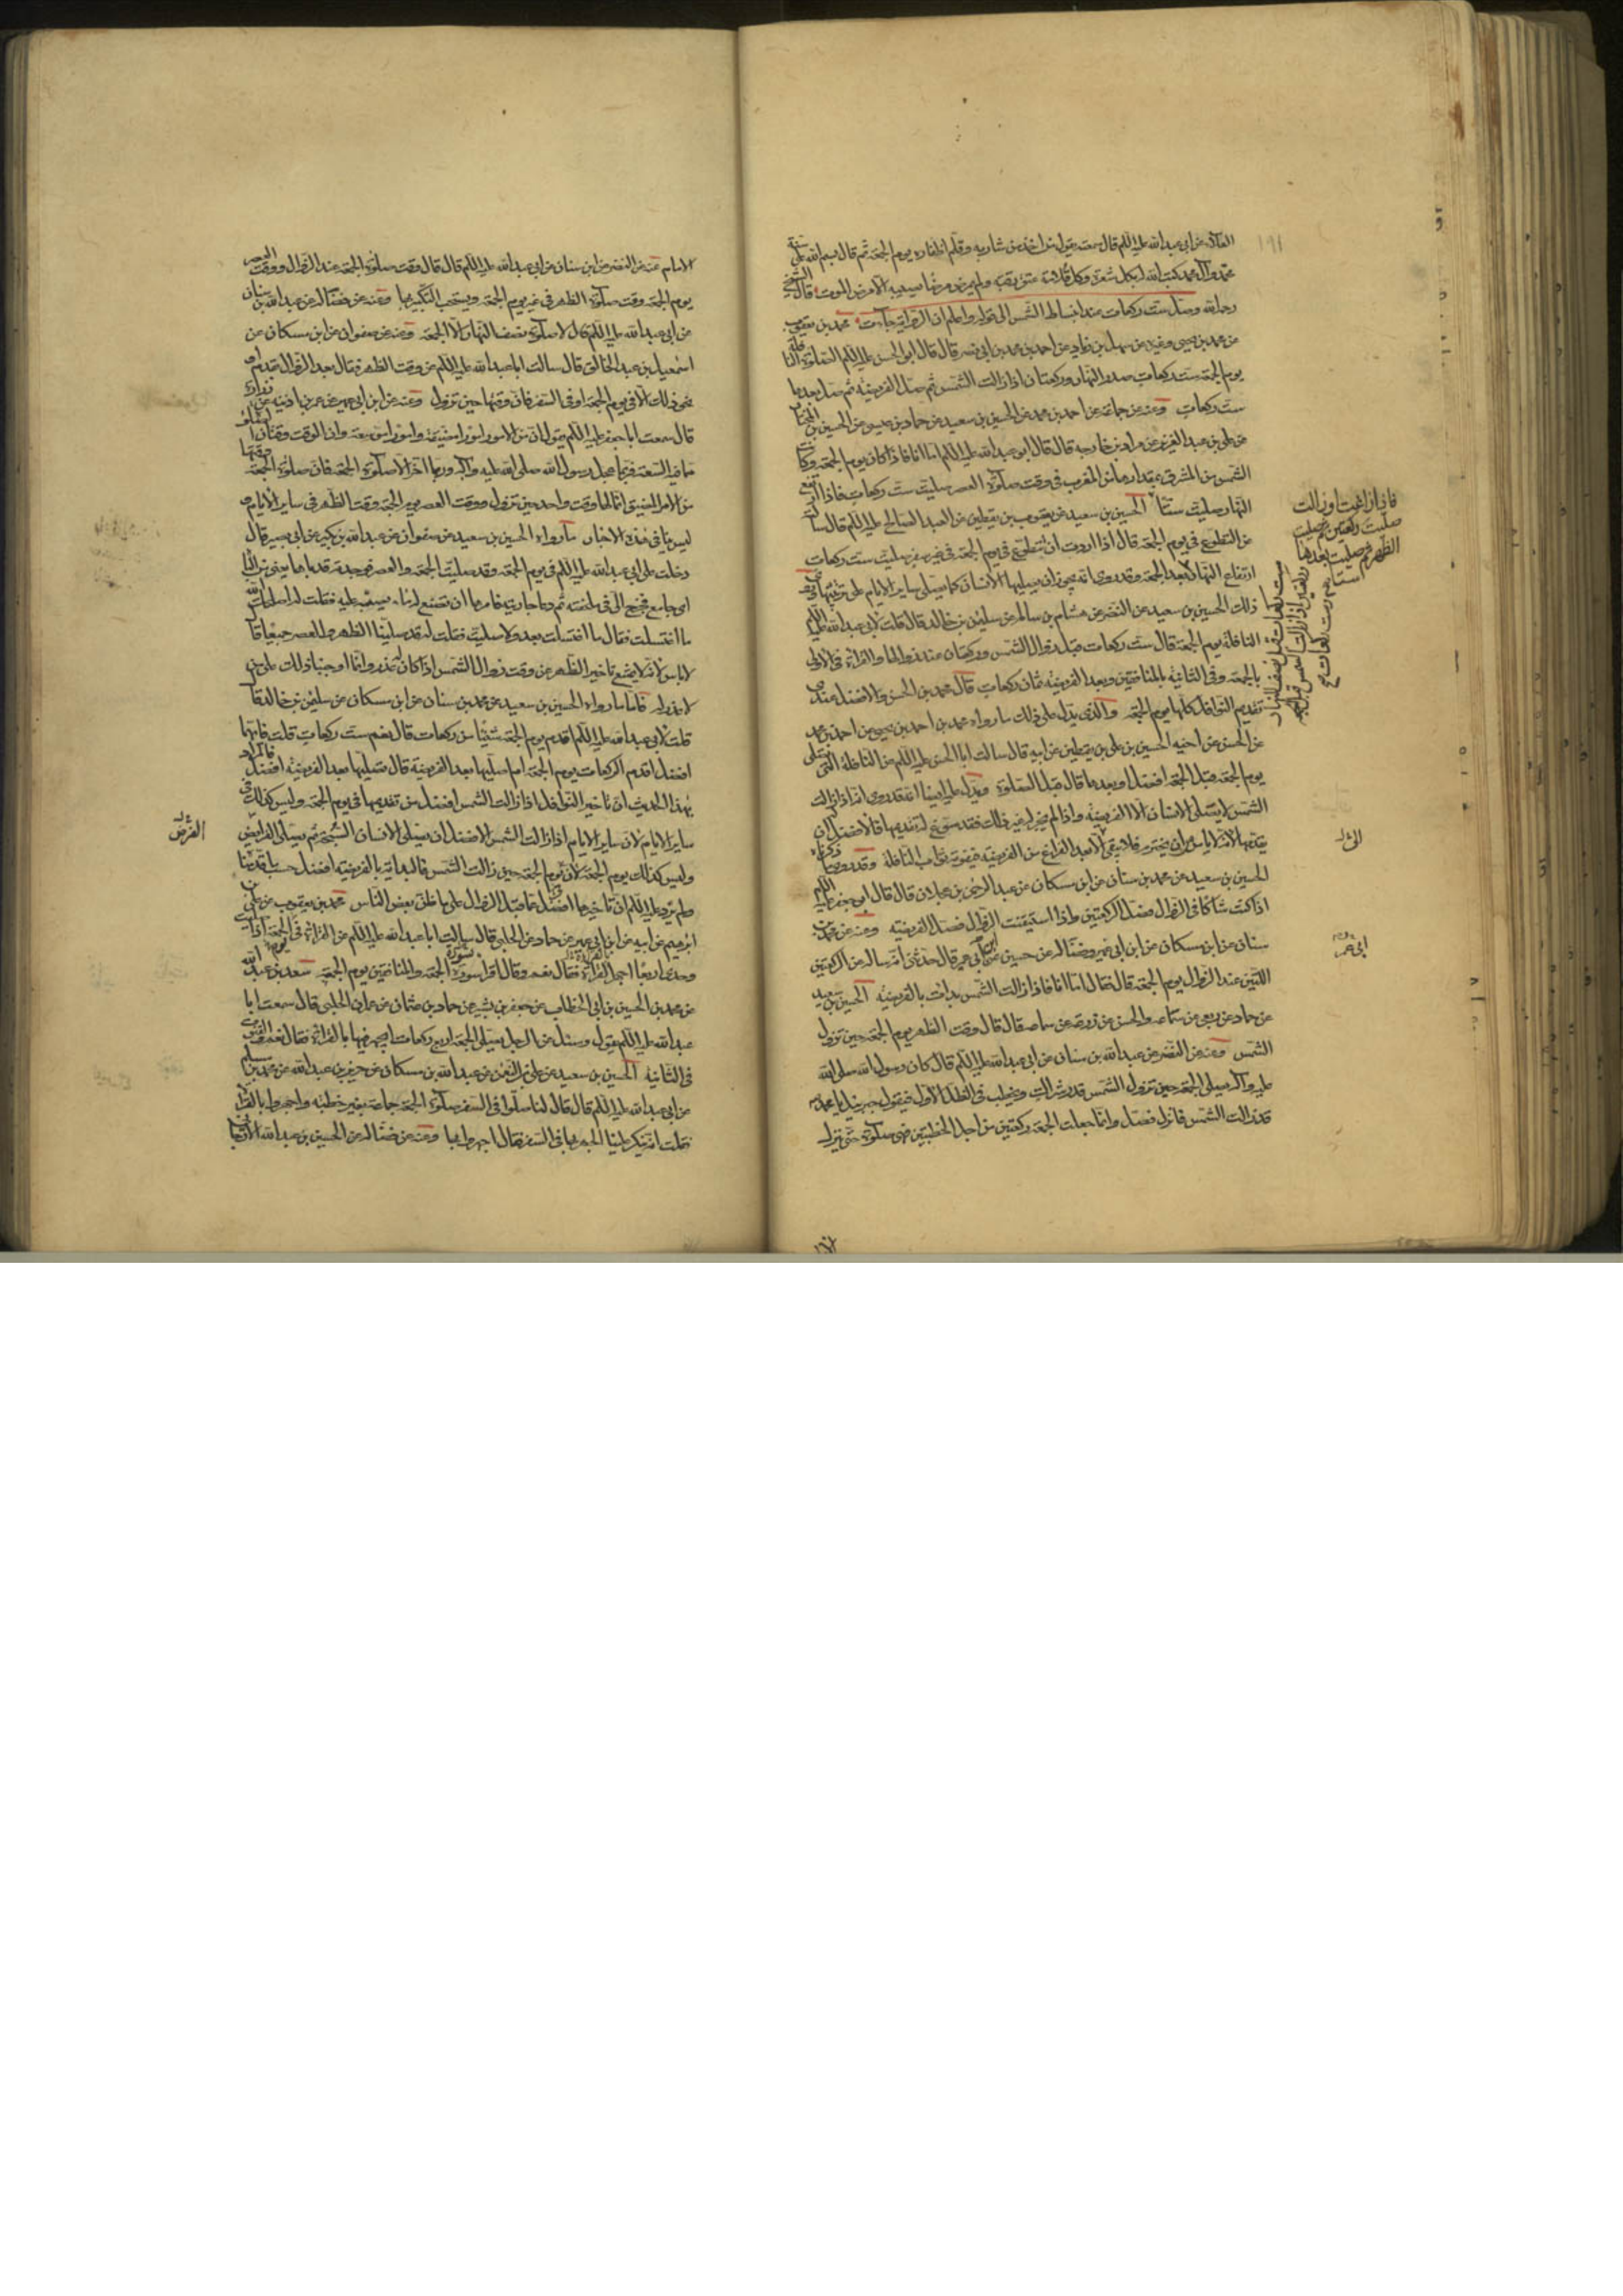 العلاء عن ابي عبدالله عليه السلم قال سمعته يقول من اخذ من شاربه وقلم اظفاره يوم الجمعة ثم قال بسم الله على سنة
محمد وآل محمد كتب الله له بكل شعرة وكل قلامة عتق رقبة ولم يمرض مرضا يصيبه الا مرض الموت قال الشيخ
رحمه الله وصل ست ركعات عند انبساط الشمس الى قوله واعلم ان الرواية جاءت محمد بن يعقوب
عن محمد بن يحيى وغيره عن سهل بن زياد عن احمد بن محمد بن ابي نصر قال قال ابو الحسن عليه السلم الصلوة النافلة
يوم الجمعة ست ركعات صدر النهار وركعتان اذا زالت الشمس ثم صل الفريضة ثم صل بعدها
ست ركعات وعنه عن جماعة عن احمد بن محمد عن الحسين بن سعيد عن حماد بن عيسى عن الحسين بن المختار
عن علي بن عبد العزيز عن مراد بن خارجة قال قال ابو عبدالله عليه السلم اما انا فاذا كان يوم الجمعة وكانت
الشمس من المشرق بمقدارها من المغرب في وقت صلوة العصر صليت ست ركعات فاذا ارتفع
النهار صليت ستا الحسين بن سعيد عن يعقوب بن يقطين عن العبد الصالح عليه السلم قال سألته
عن التطوع في يوم الجمعة قال اذا اردت ان تتطوع في يوم الجمعة في غير سفر صليت ست ركعات
ارتفاع النهار وقد روى انه يجوز ان يصليها الانسان كما يصلي ساير الايام على ترتيبها روى
ذلك الحسين بن سعيد عن النضر عن هشام بن سالم عن سليمن بن خالد قال قلت لابي عبدالله عليه السلم
النافلة يوم الجمعة قال ست ركعات قبل زوال الشمس وركعتان عند زوالها والقراءة في الاولى
بالجمعة وفي الثانية بالمنافقين وبعد الفريضة ثمان ركعات قال محمد بن الحسن والافضل عندي
تقديم النوافل كلها يوم الجمعة والذي يدل على ذلك ما رواه محمد بن احمد بن يحيى عن احمد بن محمد
عن الحسن عن اخيه الحسين بن علي بن يقطين عن ابيه قال سالت ابا الحسن عليه السلم عن النافلة التي تصلى
يوم الجمعة قبل الجمعة افضل او بعدها قال قبل الصلوة ويدل عليه ايضا انه قد روى انه اذا زالت
الشمس لا يصلى الانسان الا الفريضة واذا لم يجز له غير ذلك فقد سوغ له تقديمها فالافضل ان
الحسين بن سعيد عن محمد بن سنان عن ابن مسكان عن عبد الرحمن بن عجلان قال قال ابو جعفر عليه السلم
اذا كنت شاكا في الزوال فصل الركعتين واذا استيقنت الزوال فصل الفريضة وعنه عن محمد بن
سنان عن ابن مسكان عن ابن ابي عمير وفضالة عن حسين عن ابن ابي عمير قال حدثني انه سأله عن الركعتين
اللتين عند الزوال يوم الجمعة قال فقال اما انا فاذا زالت الشمس بدأت بالفريضة الحسين بن سعيد
عن حماد عن ربعي عن سماعة والحسن عن زرعة عن سماعة قال قال وقت الظهر يوم الجمعة حين تزول
الشمس وعنه عن النضر عن عبدالله بن سنان عن ابي عبدالله عليه السلم قال كان رسول الله صلى الله
عليه وآله يصلي الجمعة حين تزول الشمس قدر شراك ويخطب في الظل الاول فيقول جبرئيل يا محمد
قد زالت الشمس فانزل فصل وانما جعلت الجمعة ركعتين من اجل الخطبتين فهي صلوة حتى ينزل
فاذا زاغت او زالت
صليت ركعتين ثم صليت
الظهر ثم صليت بعدها
ستا
الامام عنه عن النضر عن ابن سنان عن ابي عبدالله عليه السلم قال قال وقت صلوة الجمعة عند الزوال ووقت العصر
يوم الجمعة وقت صلوة الظهر في غير يوم الجمعة ويستحب التبكير بها وعنه عن فضالة عن عبدالله بن سنان
عن ابي عبدالله عليه السلم قال لا صلوة نصف النهار الا الجمعة وعنه عن صفوان عن ابن مسكان عن
اسمعيل بن عبد الخالق قال سالت ابا عبدالله عليه السلم عن وقت الظهر فقال بعد الزوال بقدم او
نحو ذلك الا في يوم الجمعة او في السفر فان وقتها حين تزول وعنه عن ابن ابي عمير عن عمر بن اذينة عن زرارة
قال سمعت ابا جعفر عليه السلم يقول ان من الامور امورا مضيقة وامورا موسعة وان الوقت وقتان الصلوة
مما فيه السعة فربما عجل رسول الله صلى الله عليه وآله وربما اخر الا صلوة الجمعة فان صلوة الجمعة
من الامر المضيق انما لها وقت واحد حين تزول ووقت العصر يوم الجمعة وقت الظهر في ساير الايام
ليس ينافي هذه الاخبار ما رواه الحسين بن سعيد عن صفوان عن عبدالله بن بكير عن ابي بصير قال
دخلت على ابي عبدالله عليه السلم في يوم الجمعة وقد صليت الجمعة والعصر فوجدته قد باها يعني من الباه
اي جامع فخرج الى في ملحفته ثم دعا جاريته فامرها ان تضع له ماء يصبه عليه فقلت له اصلحك الله
ما اغتسلت فقال ما اغتسلت بعد ولا صليت فقلت له قد صلينا الظهر والعصر جميعا قال
لا باس لانه لا يمتنع تاخير الظهر عن وقت زوال الشمس اذا كان لعذر وانما اوجبنا ذلك على من
لا عذر له فاما ما رواه الحسين بن سعيد عن محمد بن سنان عن ابن مسكان عن سليمن بن خالد قال
قلت لابي عبدالله عليه السلم اقدم يوم الجمعة شيئا من ركعات قال نعم ست ركعات قلت فايهما
افضل اقدم الركعات يوم الجمعة ام اصليها بعد الفريضة قال تصليها بعد الفريضة افضل فالمراد
بهذا الحديث ان تاخير النوافل اذا زالت الشمس افضل من تقديمها في يوم الجمعة وليس كذلك في
ساير الايام لان ساير الايام اذا زالت الشمس الافضل ان يصلي الانسان السبحة ثم يصلي الفرايض
وليس كذلك يوم الجمعة لان يوم الجمعة حين زالت الشمس فالبداية بالفريضة افضل حسب ما قدمنا
ولم يرد عليه السلم ان تاخيرها افضل مما قبل الزوال على ما ظن بعض الناس محمد بن يعقوب عن علي بن
ابرهيم عن ابيه عن ابن ابي عمير عن حماد عن الحلبي قال سالت ابا عبدالله عليه السلم عن القراءة في الجمعة اذا صليت
وحدي اربعا اجهر بالقراءة فقال نعم وقال اقرا سورة الجمعة والمنافقين يوم الجمعة سعد بن عبدالله
عن محمد بن الحسين بن ابي الخطاب عن جعفر بن بشير عن حماد بن عثمان عن عمران الحلبي قال سمعت ابا
عبدالله عليه السلم يقول وسئل عن الرجل يصلي الجمعة اربع ركعات ايجهر فيها بالقراءة فقال نعم والقنوت
في الثانية الحسين بن سعيد عن علي بن النعمن عن عبدالله بن مسكان عن حريز بن عبدالله عن محمد بن مسلم
عن ابي عبدالله عليه السلم قال قال لنا صلوا في السفر صلوة الجمعة جماعة بغير خطبة واجهروا بالقراءة
فقلت انه ينكر علينا الجهر بها في السفر فقال اجهروا بها وعنه عن فضالة عن الحسين بن عبدالله الارجاني